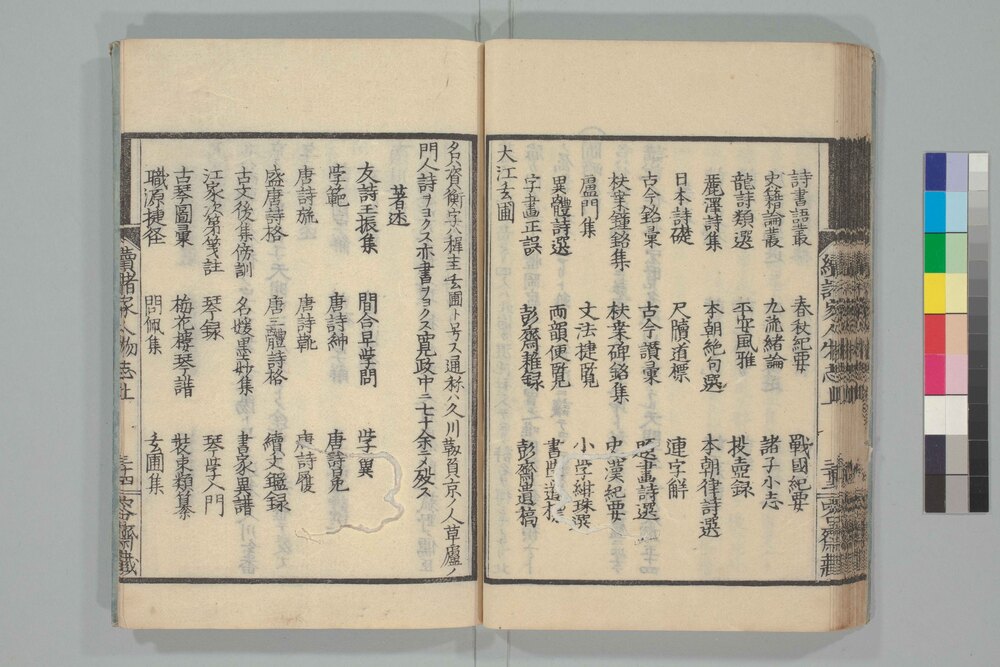 詩書語叢 春秋紀要 戰國紀要
史籍論叢 九流緒論 諸子小志
龍詩類選 平安風雅 投壺録
麗澤詩集 本朝絶句選 本朝律詩選
日本詩礎 尺牘道標 連字解
古今銘彙 古今讚彙 畫詩選
扶桑鐘銘集 扶桑碑銘集 史漢紀要
盧門集 文法捷覧 小学紺珠選
異體詩選 両韻便覧 書
字畫正誤 彭齋雜録 彭齋遺稿
大江玄圃
名ハ資衡字ハ穉圭玄圃ト号ス通称ハ久川靱負京ノ人草廬ノ
門人詩ヲヨクス亦書ヲヨクス寛政中ニ七十余ニテ歿ス
著述
友詩玉振集 間合早学問 学翼
学範 唐詩紳 唐詩冕
唐詩旒 唐詩靴 唐詩履
盛唐詩格 唐三體詩格 續文鑑録
古文後集傍訓 名媛墨妙集 書家異譜
江家次第箋註 琴録 琴学入門
古琴圖彙 梅花樓琴譜 裝束類纂
職源捷径 問佩集 玄圃集
續諸家人物志上 三十四 容齋藏